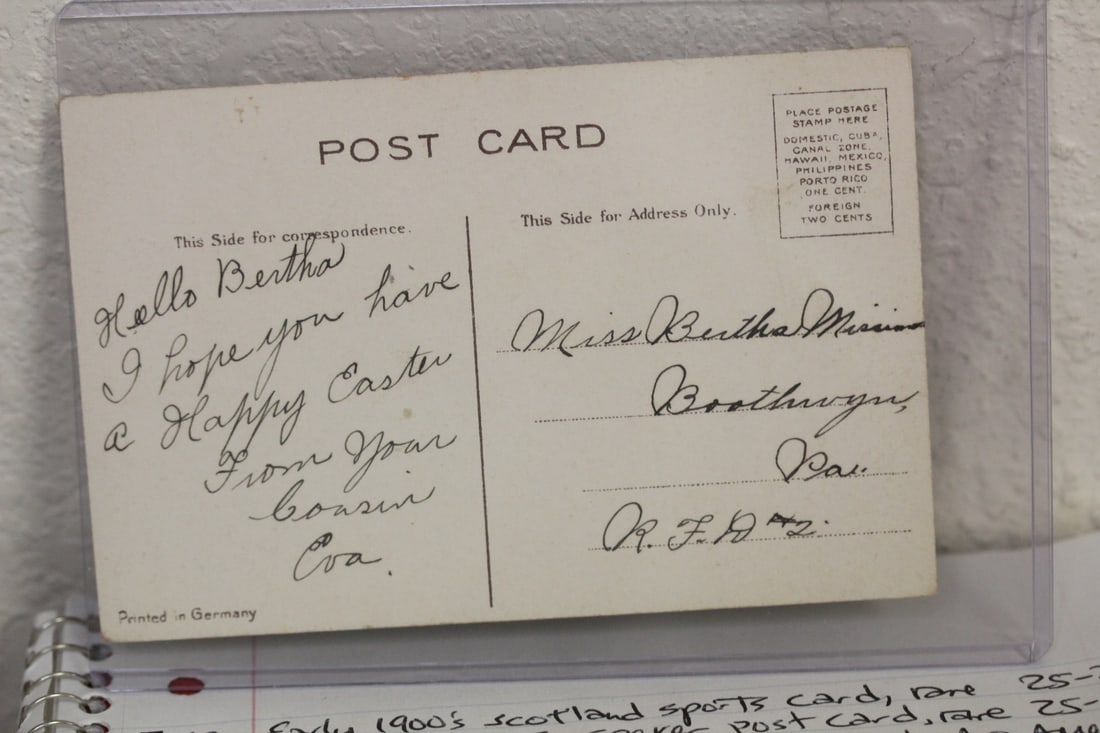 POST CARD
PLACE POSTAGE
STAMP HERE
DOMESTIC, CUBA,
CANAL ZONE,
HAWAII, MEXICO,
PHILIPPINES
PORTO RICO
ONE CENT.
FOREIGN
TWO CENTS
This Side for correspondence.
Hello Bertha
I hope you have
a Happy Easter
From Your
Cousin
Eva.
This Side for Address Only.
Miss Bertha
Boothwyn,
Pa.
R. F. D #2.
Printed in Germany
Early 1900's scotland sports card, rare 25-
post card, rare 25-